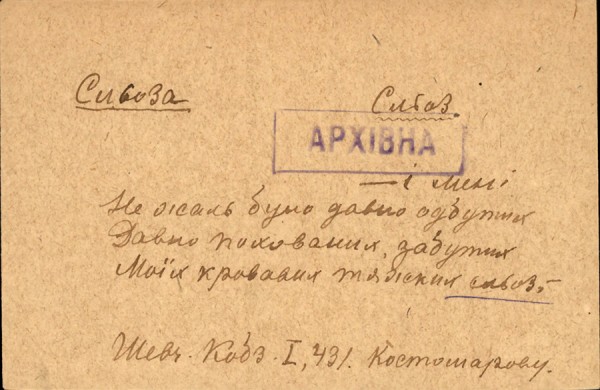 Сльоза Сльоз.
АРХІВНА
— і мені
Не жаль було давно одбутих
Давно похованих, забутих
Моїх кровавих тяжких сльоз,
Шевч. Кобз. I, 431. Костомарову.